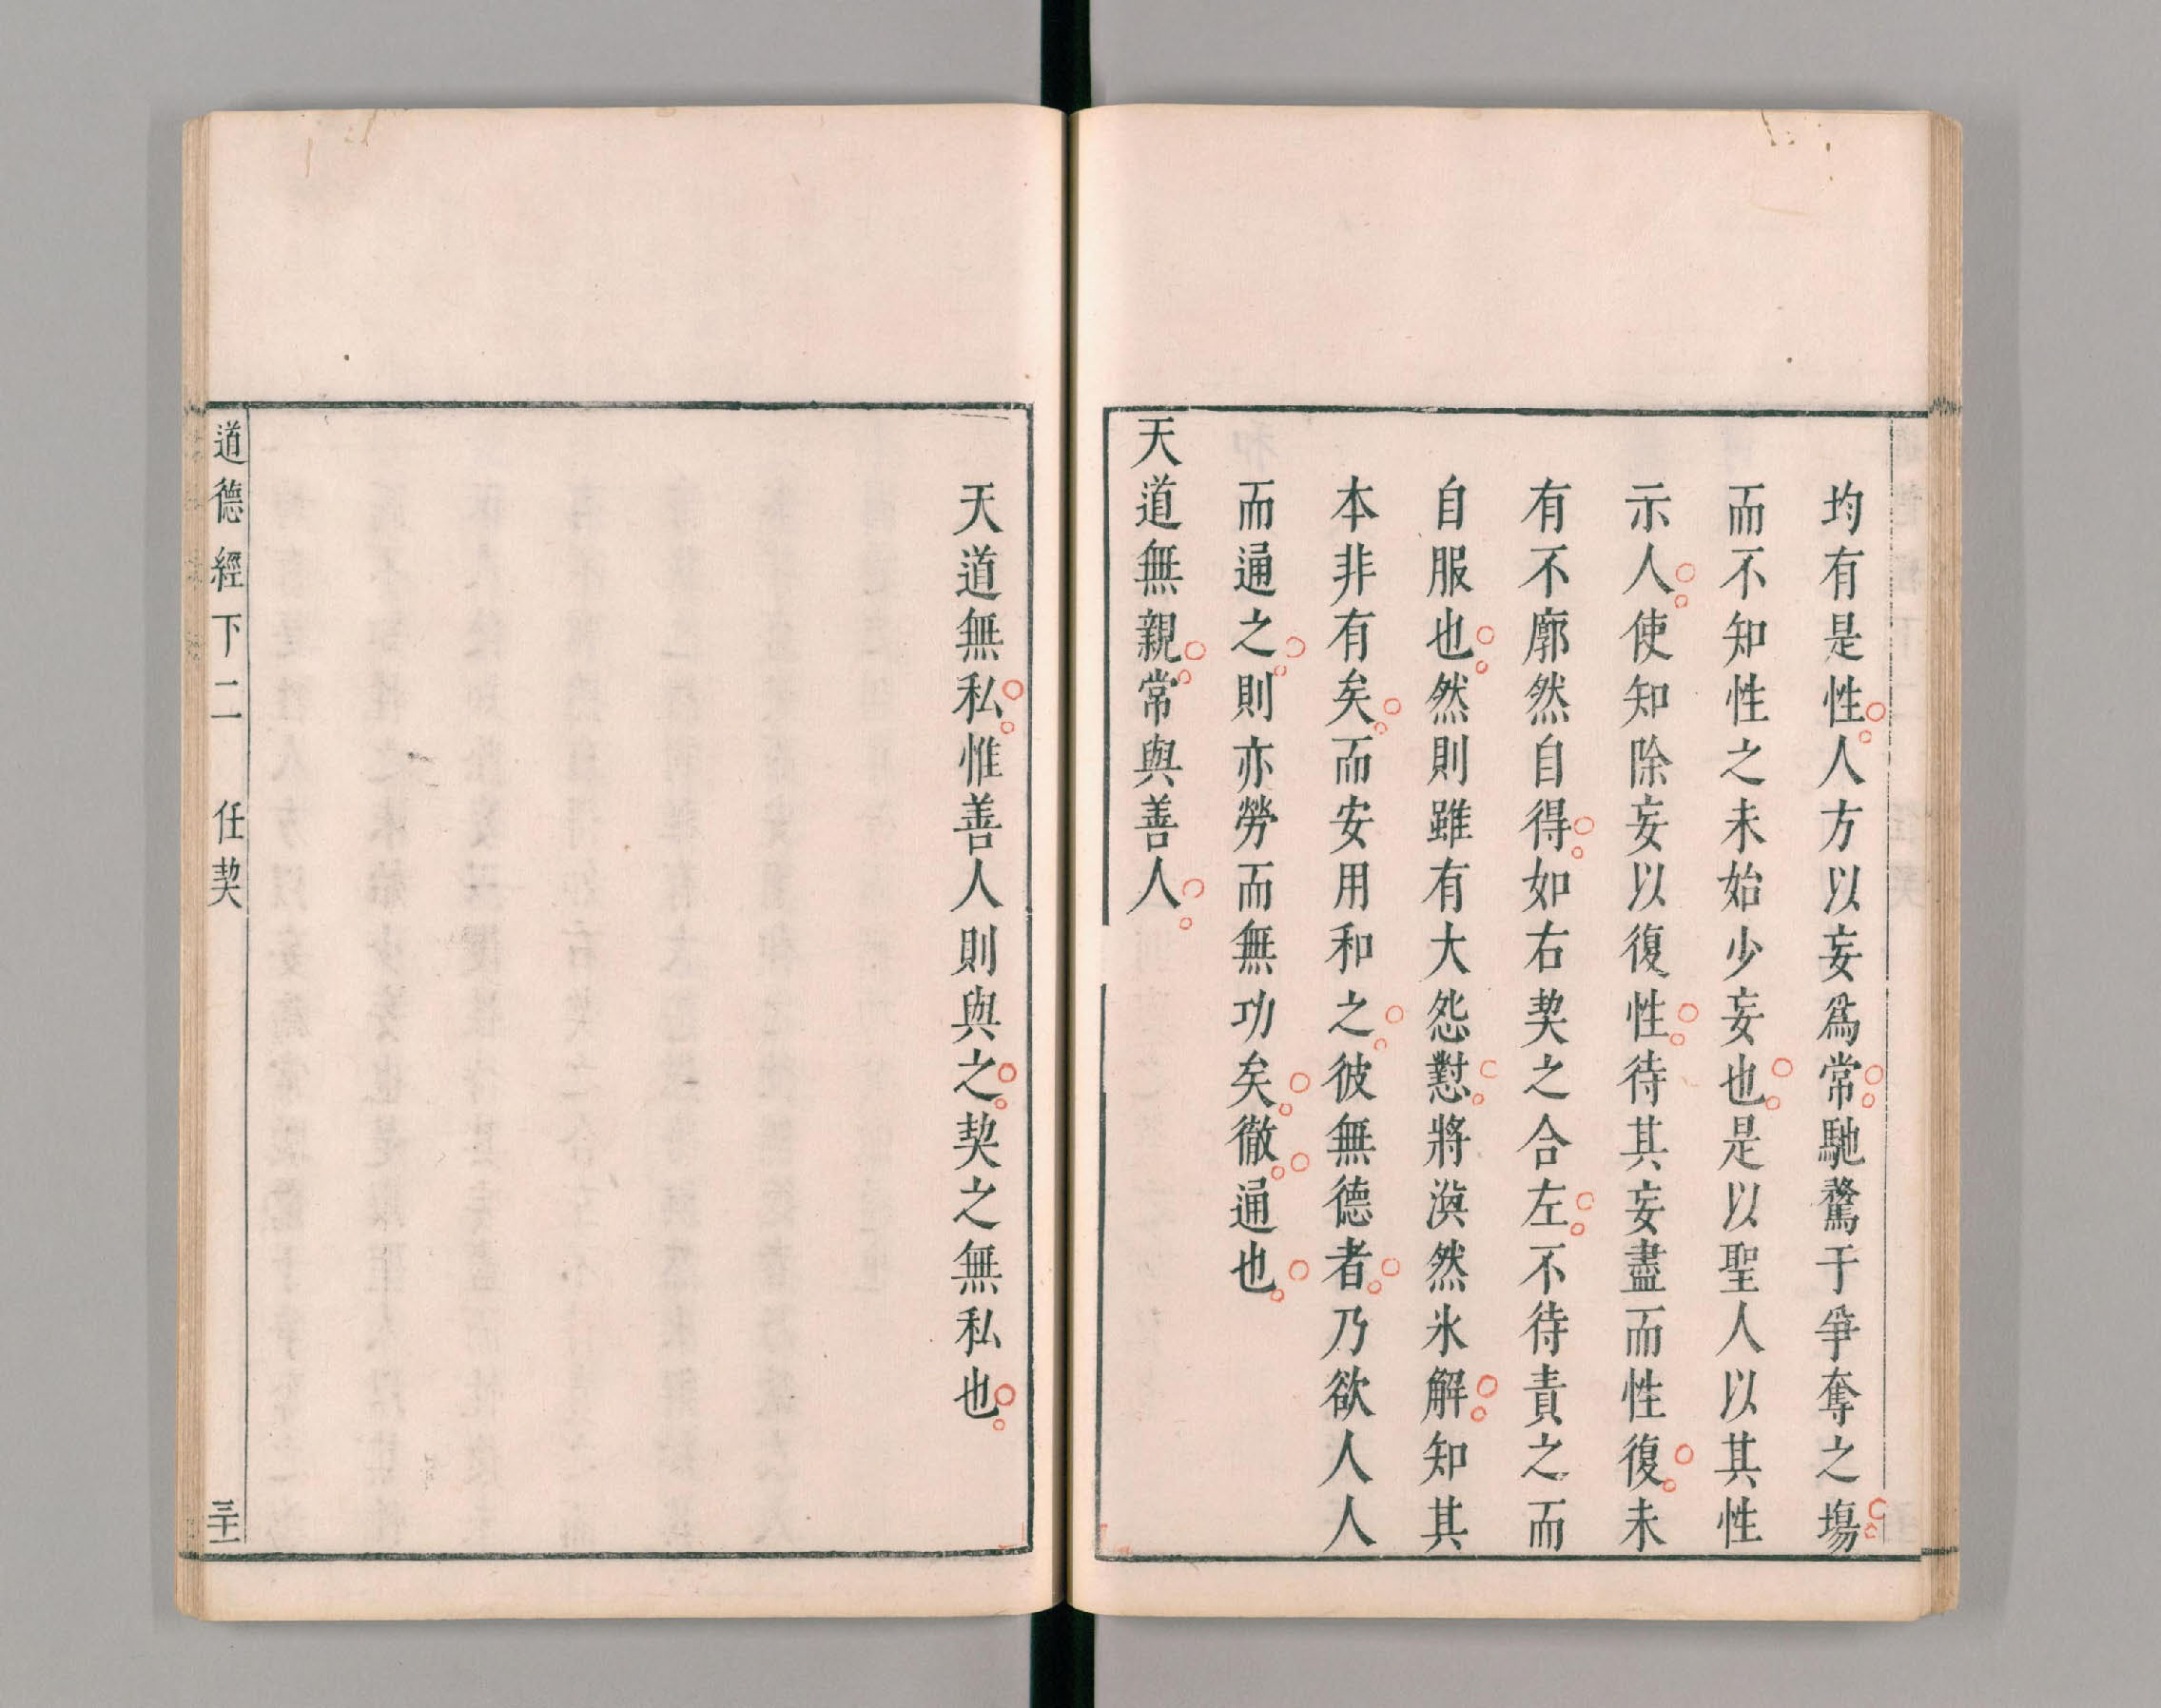 均有是性人方以妄爲常馳騖于爭奪之塲
而不知性之未始少妄也是以聖人以其性
示人使知除妄以復性待其妄盡而性復未
有不廓然自得如右契之合左不待責之而
自服也然則雖有大怨懟將渙然氷解知其
本非有矣而安用和之彼無德者乃欲人人
而通之則亦勞而無功矣徹通也
天道無親常與善人
天道無私惟善人則與之契之無私也
道德經下二 任契 三十一